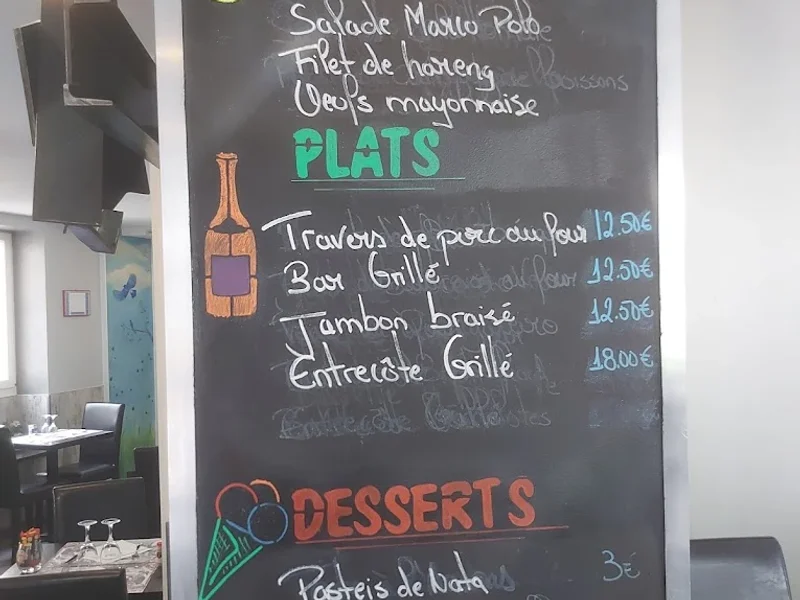 Salade Marco Polo
Filet de hareng
Oeufs mayonnaise
PLATS
Travers de porc au four 12.50€
Bar Grillé 12.50€
Jambon braisé 12.50€
Entrecôte Grillé 18.00€
DESSERTS
Pasteis de Nata 3€